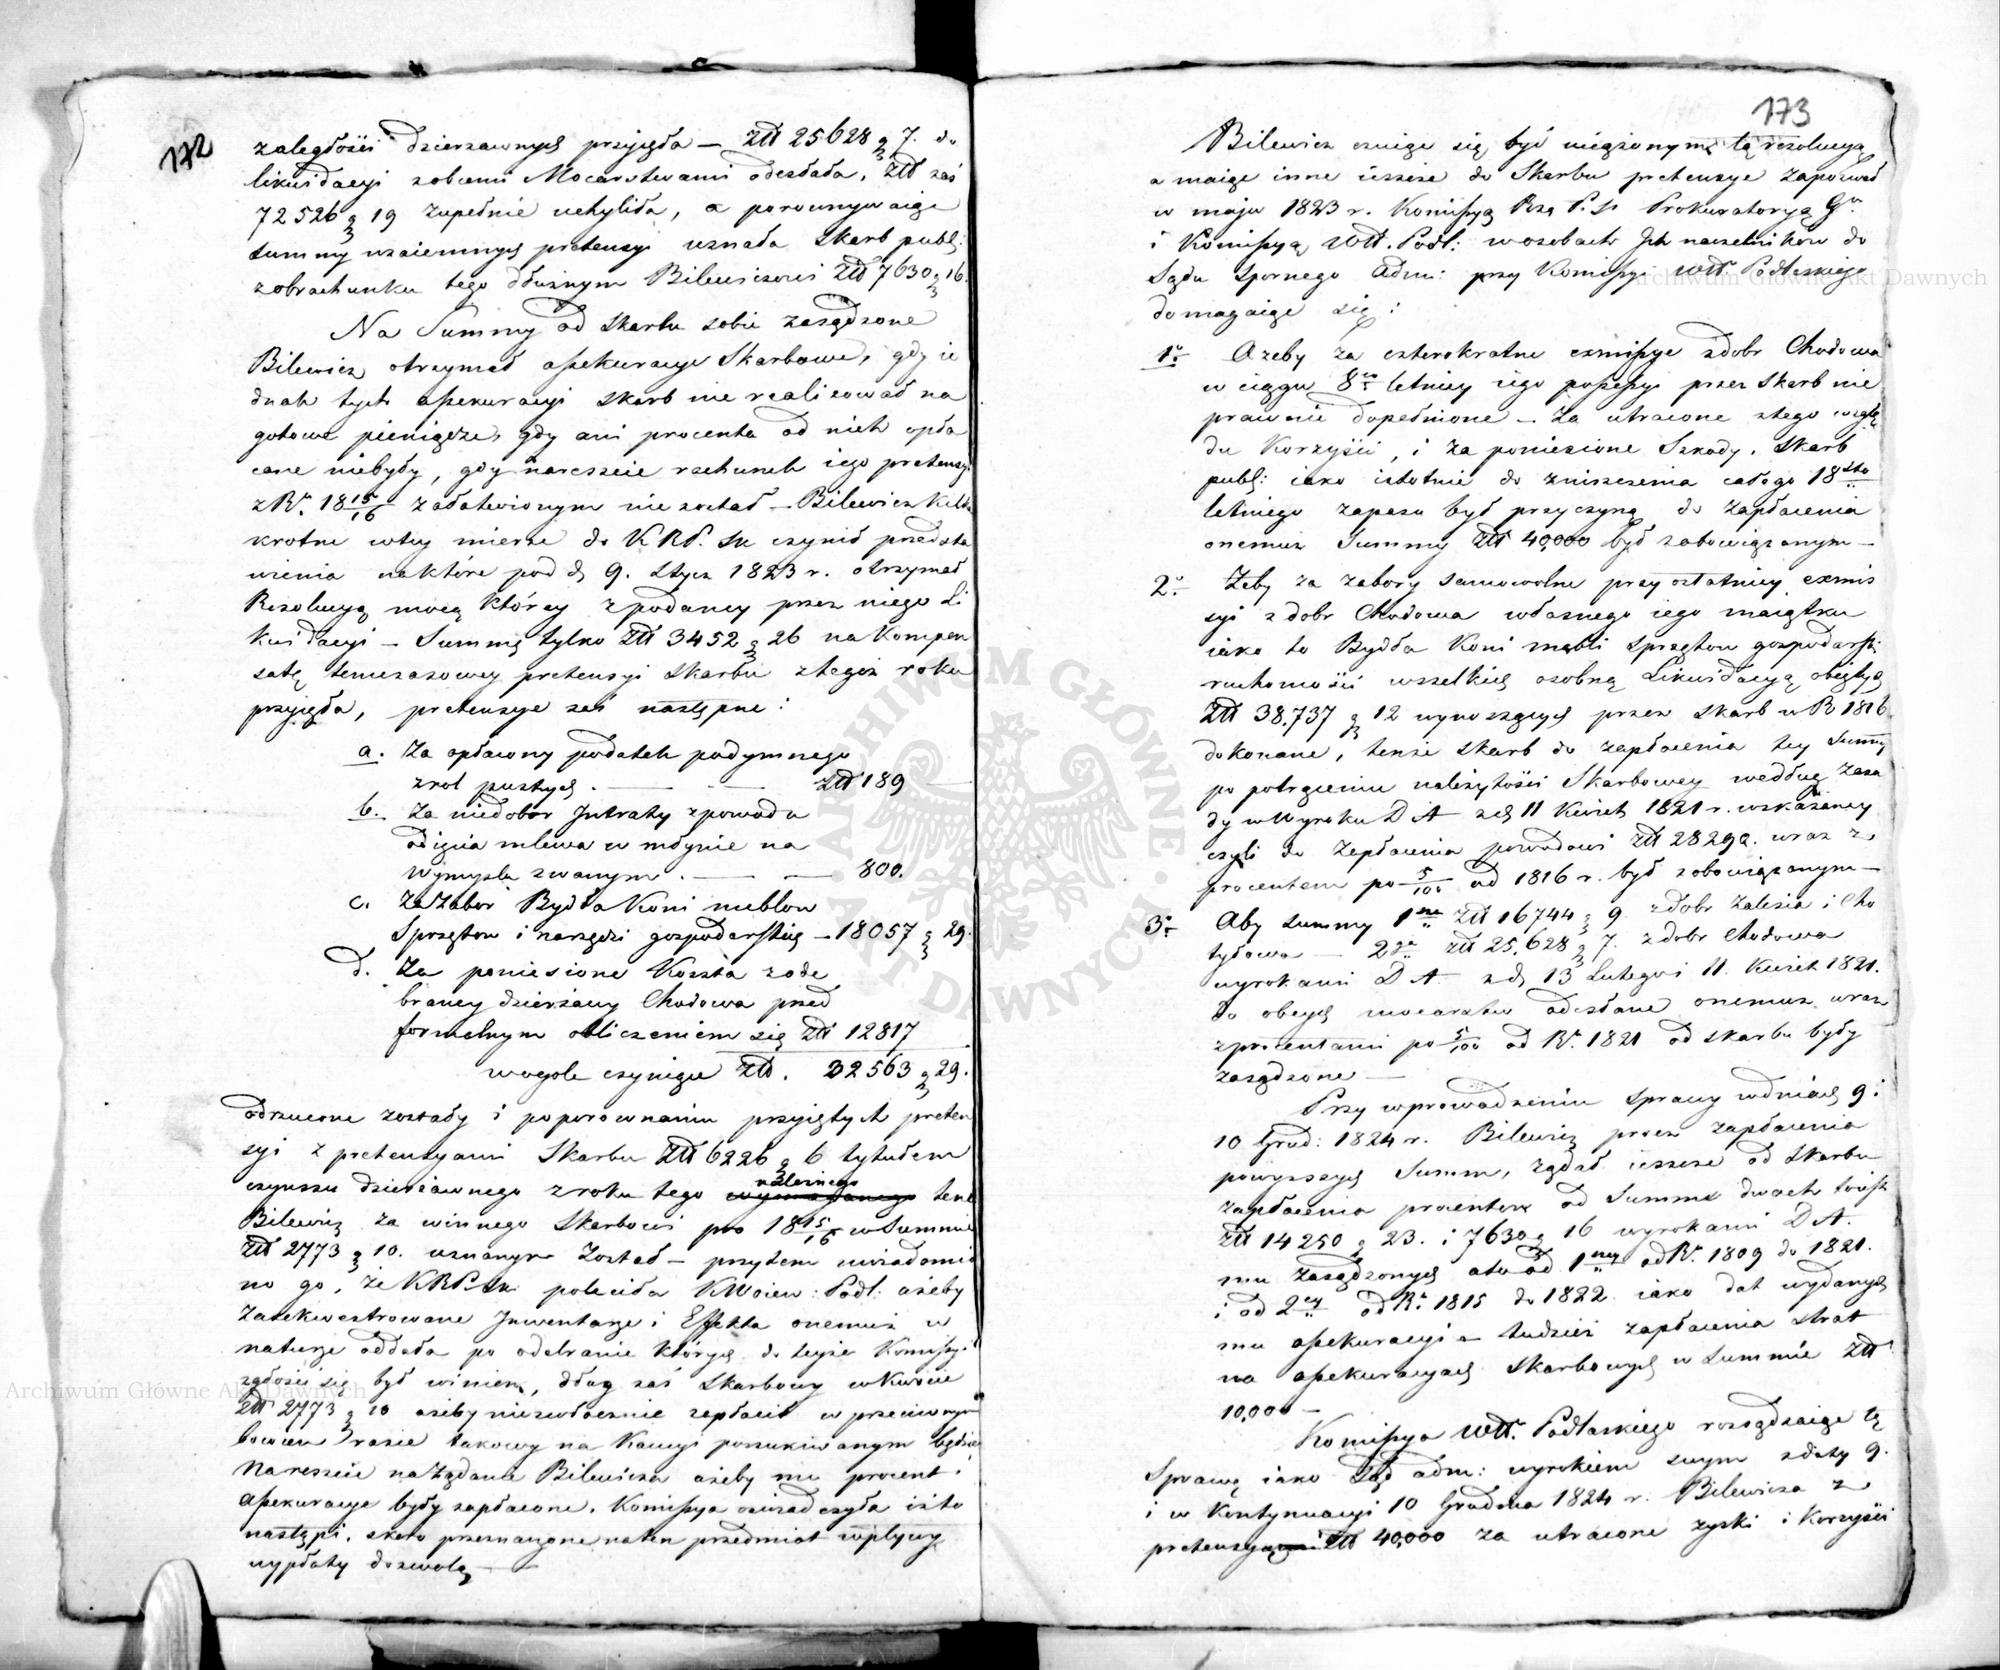 172
zaległości dzierzawnych przyięła — Złł 25628 g 7. do
likwidacyi z obcemi Mocarstwami odesłała, Złł zaś
72526 g 19 zupełnie uchyliła, a porownywaiąc
summy wzaiemnych pretensyi uznała Skarb publ:
z obrachunku tego dłużnym Bilewiczowi Złł 7630 g 16.
Na Summy od Skarbu sobie zasądzone
Bilewicz otrzymał assekuracye Skarbowe, gdy ie
dnak tych assekuracyi Skarb nie realizował na
gotowe pieniądze, gdy ani procenta od nich opła
cane niebyły, gdy nareszcie rachunek iego pretensyi
z Rr. 1815/16 załatwionym nie został — Bilewicz kilka
krotne w tey mierze do K.R.P. Sk czynił przedsta
wienia na które pod d. 9. Stycz 1823 r. otrzymał
Rezolucyą mocą którey z podaney przez niego Li
kwidacyi — Summę tylko Złł 3452 g 26 na Kompen
satę temczasowey pretensyi Skarbu z tegoż roku
przyięła, pretensye zaś następne:
a. Za opłacony podatek podymnego
z rol pustych . — — Złł 189 —
b. Za niedobor Intraty z powodu
odięcia mlewa w młynie na
Wymyslu zwanym . — — 800.
c. Za Zabór Bydła Koni meblow
Sprzętow i narzędzi gospodarskich — 18057 g 29.
d. Za poniesione Koszta z ode
braney dzierżawy Chodowa przed
formalnym obliczeniem się Złł 12817
wogole czyniące Złł. 32563 g 29.
odrzucone zostały i po porównaniu przyiętych preten
syi z pretensyami Skarbu Złł 6226 g 6 tytułem
czynszu dzierżawnego z roku tego należnego tenże
Bilewicz za winnego Skarbowi pro 1815/16 w Summie
Złł 2773 g 10. uznanym Został — przytem uwiadomio
no go, że KRP. Sk poleciła K Woiew: Podl: ażeby
Zasekwestrowane Inwentarze i Effekta onemuż w
naturze oddała po odebranie których do teyże Komissyi
zgłosić się był winien, dług zaś Skarbowy w kwocie
Złł 2773 g 10 ażeby niezwłocznie zapłacił w przeciwnym
bowiem razie takowy na Kaucyi poszukiwanym będzie
Nareszcie na żądanie Bilewicza ażeby mu procent i
assekuracye były zapłacone, Komissya oświadczyła iż to
nastąpi, skoro przeznaczone na ten przedmiot wpływy
wypłaty dozwolą —
173
Bilewicz czuiąc się być uciążonym tą rezolucyą
a maiąc inne ieszcze do Skarbu pretensye zapozwał
w maju 1823 r. Komissyą Rzą P. Sk Prokuratoryą Gn.
i Komissyą Wtt. Podl: w osobach Ich naczelników do
Sądu Spornego Adm: przy Komissyi Wtt Podlaskiego
domagaiąc się:
1o. Ażeby za czterokratne exmissye z dobr Chodowa
w ciągu 8o letniey iego possessyi przez Skarb nie
prawnie dopełnione — za utracone z tego wzglę
du Korzyści, i za poniesione Szkody, Skarb
publ: iako istotnie do zniszczenia całogo 18sto
letniego zapasu był przyczyną do Zapłacenia
onemuż Summy Złł 40,000 był zobowiązanym —
2o. Żeby za zabory samowolne przy ostatniey exmis
syi z dobr Chodowa własnego iego maiątku
iako to Bydła Koni mebli Sprzętow gospodarsk:
ruchomości wszelkich osobną Likwidacyą obiętych
Złł 38,737 g 12 wynoszących przez Skarb w R 1816
dokonane, tenże Skarb do zapłacenia tey Summy
po potrąceniu należytości Skarbowey według Zasa
dy w Wyroku D A z d. 11 Kwiet 1821 r. wskazaney
czyli do Zapłacenia powodowi Złł 28292. wraz z
procentem po 5/100 od 1816 r. był zobowiązanym —
3o. Aby summy 1ma Złł 16744 g 9 z dobr Zalesia i Cho
tyłowa — 2ga Złł 25,628 g 7. z dobr Chodowa
wyrokami D A z d. 13 Lutego i 11. Kwiet 1821.
do obcych mocarstw odesłane onemuż wraz
z procentami po 5/100 od Rr. 1821 od Skarbu były
zasądzone —
Przy wprowadzeniu Sprawy w dniach 9 i
10 Grud: 1824 r. Bilewicz procz zapłacenia
powyższych Summ, żądał ieszcze od Skarbu
zapłacenia procentow od Summ dwoch to iest
Złł 14250 g 23. i 7630 g 16 wyrokami D A.
mu zasądzonych a to od 1wszey od Rr. 1809 do 1821.
i od 2ey od Rr. 1815 do 1822 iako dat wydanych
mu assekuracyi — tudzież zapłacenia strat
na assekuracyach Skarbowych w Summie Złł
10,000 —
Komissya Wtt. Podlaskiego rozsądzaiąc tę
Sprawę iako Sąd adm: wyrokiem swym z daty 9.
i w Kontynuacyi 10 Grudnia 1824 r. Bilewicza z
pretensyą Złł 40,000 za utracone zyski i Korzyści
ARCHIWUM GŁÓWNE AKT DAWNYCH
Archiwum Główne Akt Dawnych
Archiwum Główne Akt Dawnych